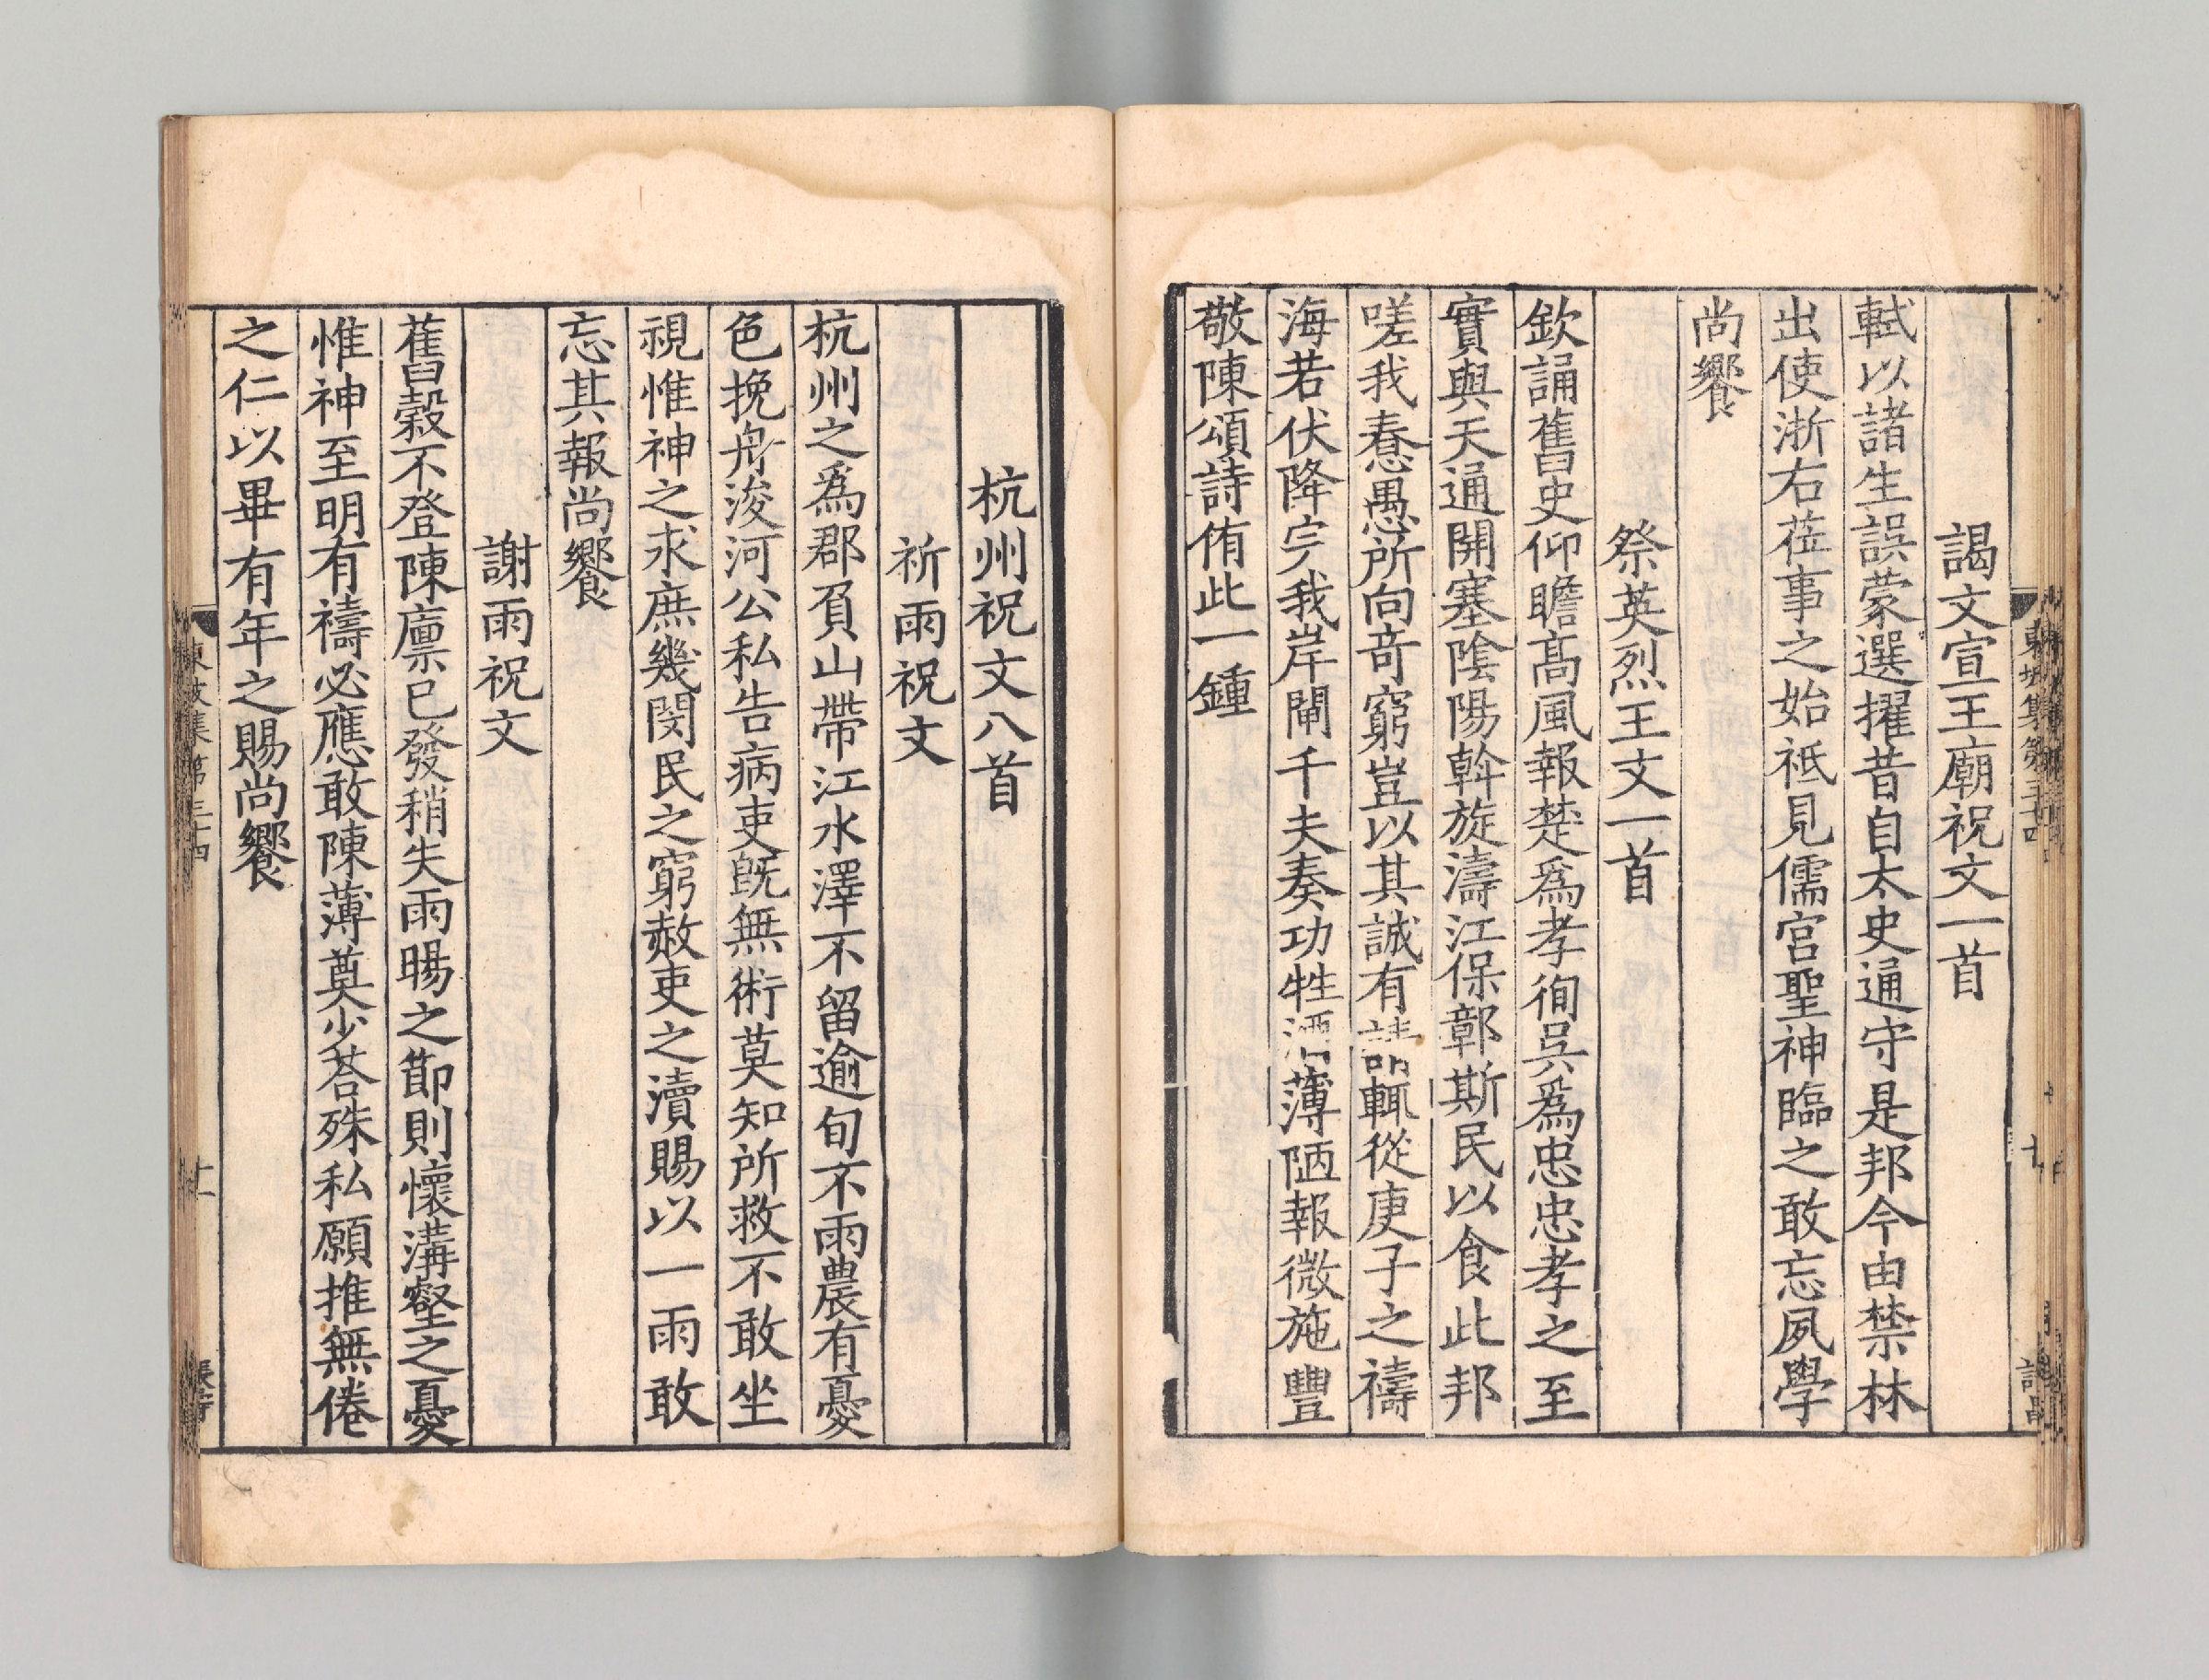 謁文宣王廟祝文一首
軾以諸生誤蒙選擢昔自太史通守是邦今由禁林
出使浙右莅事之始祗見儒宮聖神臨之敢忘夙學
尚饗
祭英烈王文一首
欽誦舊史仰瞻髙風報楚爲孝徇吳爲忠忠孝之至
實與天通開塞陰陽斡旋濤江保鄣斯民以食此邦
嗟我惷愚所向竒窮豈以其誠有請輒從庚子之禱
海若伏降完我岸閘千夫奏功牲酒薄陋報微施豐
敬陳頌詩侑此一鍾
杭州祝文八首
祈雨祝文
杭州之爲郡負山帶江水澤不留逾旬不雨農有憂
色挽舟浚河公私告病吏旣無術莫知所救不敢坐
視惟神之求庶幾閔民之窮赦吏之瀆賜以一雨敢
忘其報尚饗
謝雨祝文
舊穀不登陳廩已發稍失雨暘之節則懷溝壑之憂
惟神至明有禱必應敢陳薄奠少荅殊私願推無倦
之仁以畢有年之賜尚饗
東坡集第三十四
十一